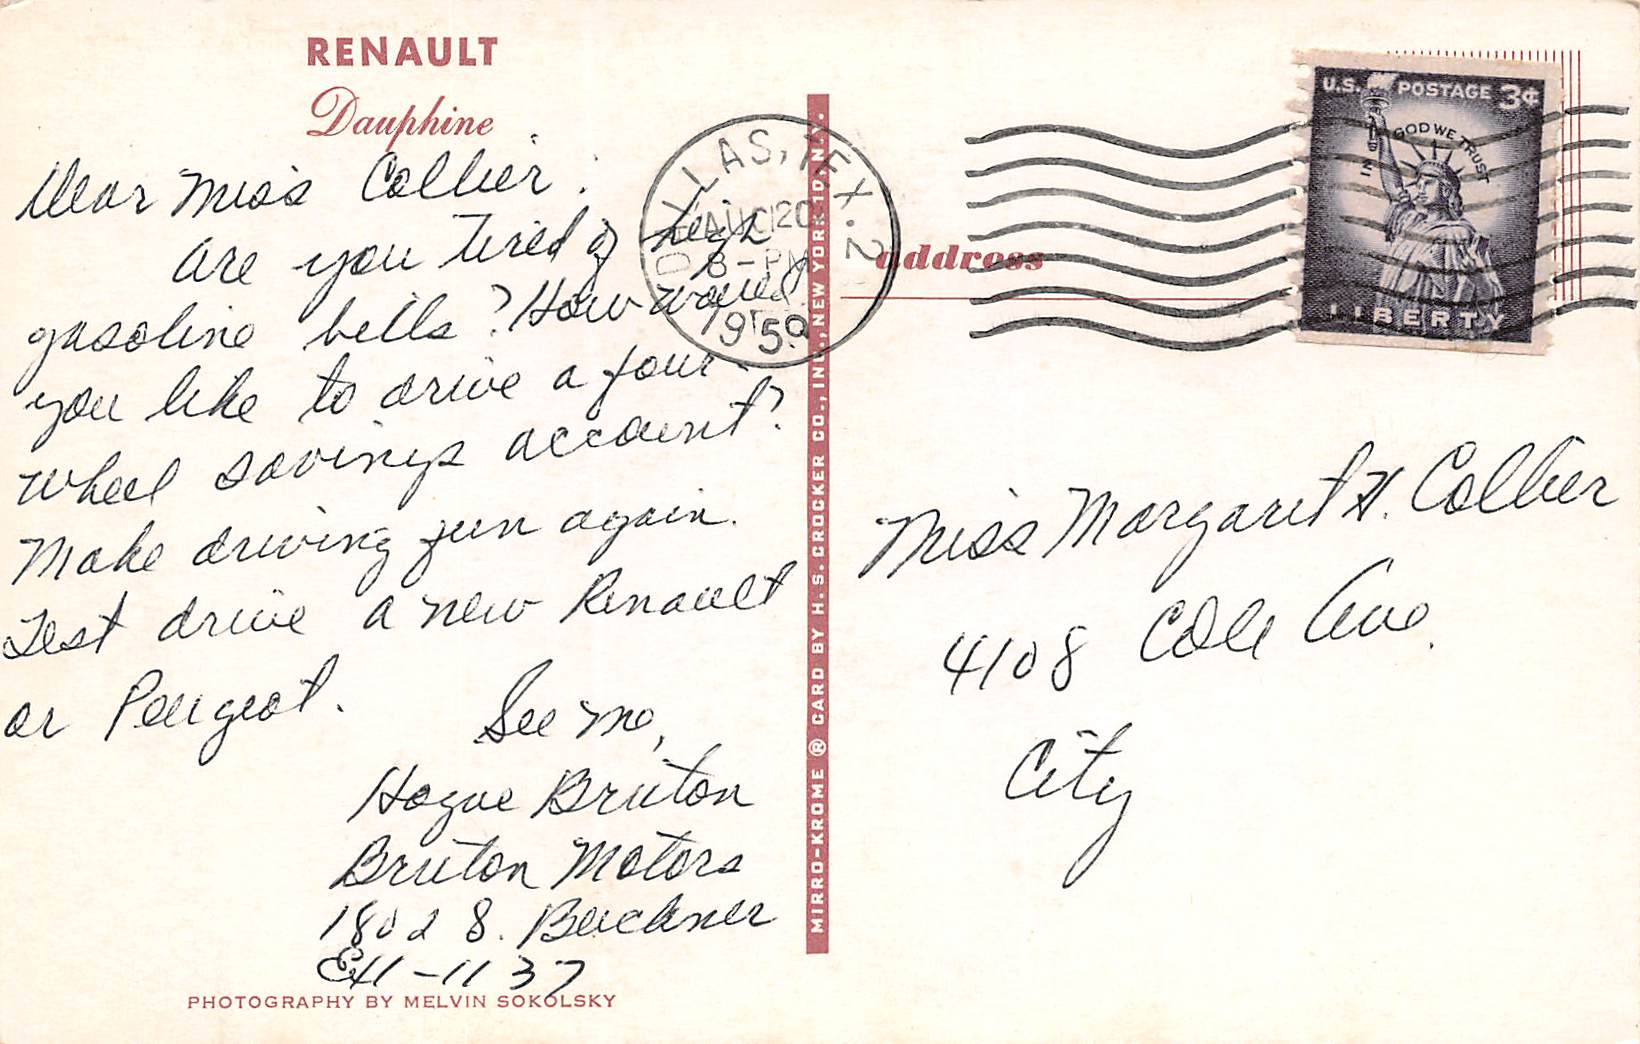 RENAULT
Dauphine
Dear Miss Collier:
Are you tired of high
gasoline bills? How would
you like to drive a four-
wheel savings account?
Make driving fun again.
Test drive a new Renault
or Peugeot.
See me,
Hogue Bruton
Bruton Motors
1802 S. Buckner
EX1-1137
PHOTOGRAPHY BY MELVIN SOKOLSKY
MIRRO-KROME ® CARD BY H. S. CROCKER CO., INC., NEW YORK 10, N.Y.
DALLAS, TEX. 2
AUG 20
8-PM
1959
U.S. POSTAGE 3¢
IN GOD WE TRUST
LIBERTY
address
Miss Margaret H. Collier
4108 Cole Ave.
City